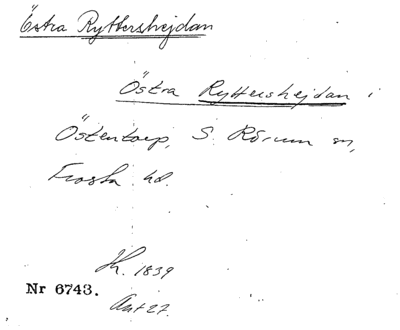 Östra Ryttershejdan
Östra Ryttershejdan i
Östentorp, S. Rörum sn,
Frosta hd.
Kh. 1839
Nr 6743.
Avt 27.